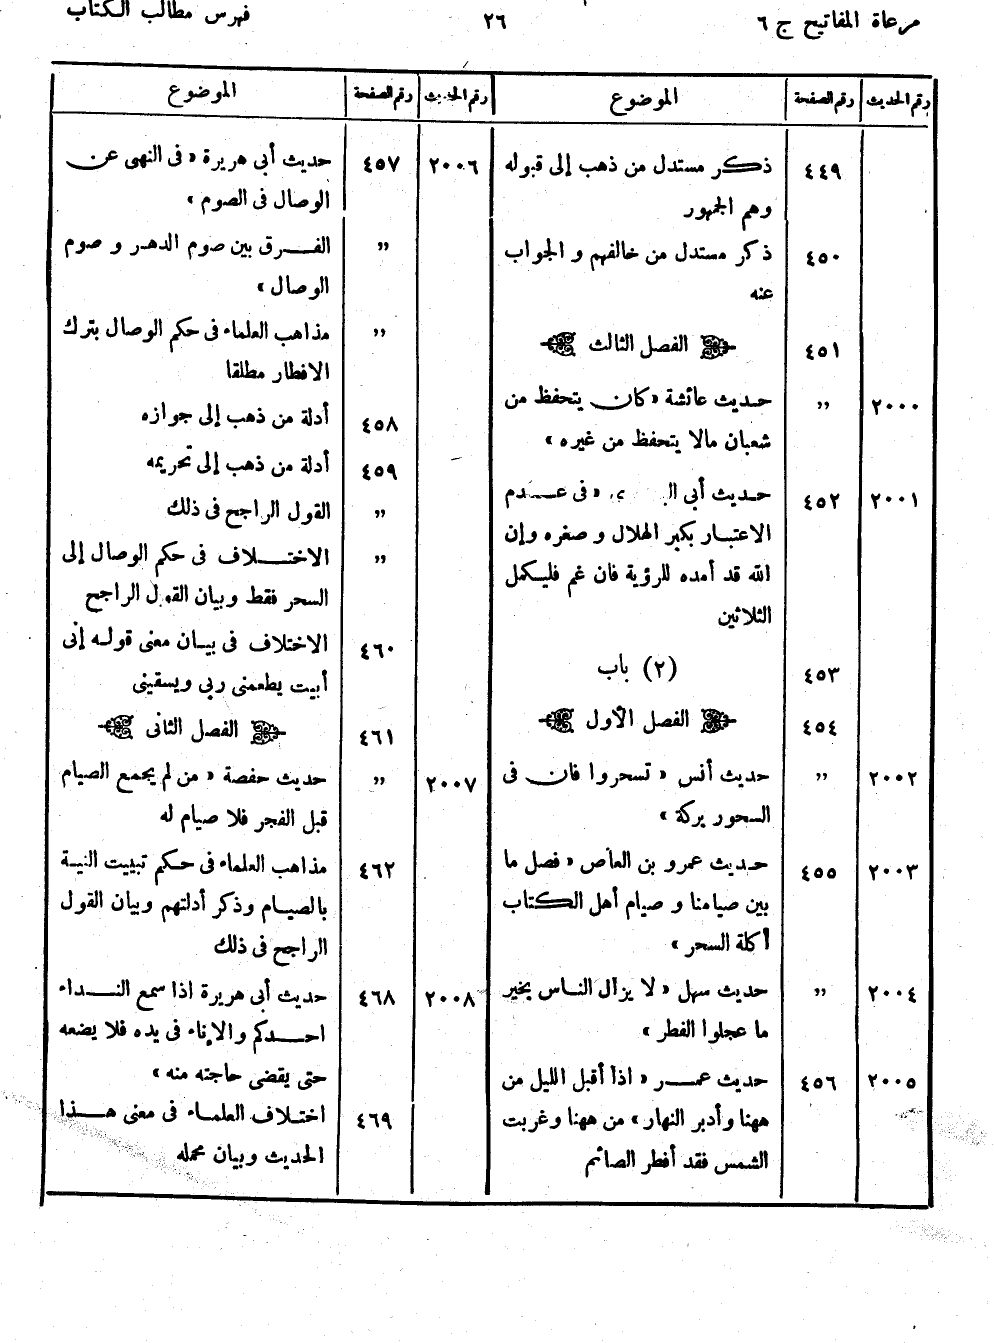 مرعاة المفاتيح ج ٦ ٢٦ فهرس مطالب الكتاب
رقم الحديث رقم الصفحة الموضوع
٤٤٩ ذكر مستدل من ذهب إلى قبوله
وهم الجمهور
٤٥٠ ذكر مستدل من خالفهم و الجواب
عنه
٤٥١ الفصل الثالث
٢٠٠٠ ,, حديث عائشة « كان يتحفظ من
شعبان مالا يتحفظ من غيره »
٢٠٠١ ٤٥٢ حديث أبي « فى عدم
الاعتبار بكبر الهلال و صغره وإن
الله قد أمده للرؤية فان غم فليكمل
الثلاثين
٤٥٣ (٢) باب
٤٥٤ الفصل الأول
٢٠٠٢ ,, حديث أنس « تسحروا فان فى
السحور بركة »
٢٠٠٣ ٤٥٥ حديث عمرو بن العاص « فصل ما
بين صيامنا و صيام أهل الكتاب
أكلة السحر »
٢٠٠٤ ,, حديث سهل « لا يزال الناس بخير
ما عجلوا الفطر »
٢٠٠٥ ٤٥٦ حديث عمر « اذا أقبل الليل من
ههنا وأدبر النهار » من ههنا وغربت
الشمس فقد أفطر الصائم
رقم الحديث رقم الصفحة الموضوع
٢٠٠٦ ٤٥٧ حديث أبى هريرة « فى النهى عن
الوصال فى الصوم »
,, الفرق بين صوم الدهر و صوم
الوصال »
,, مذاهب العلماء فى حكم الوصال بترك
الافطار مطلقا
٤٥٨ أدلة من ذهب إلى جوازه
٤٥٩ أدلة من ذهب إلى تحريمه
,, القول الراجح فى ذلك
,, الاختلاف فى حكم الوصال إلى
السحر فقط وبيان القول الراجح
٤٦٠ الاختلاف فى بيان معنى قوله إنى
أبيت يطعمنى ربى ويسقينى
٤٦١ الفصل الثانى
٢٠٠٧ ,, حديث حفصة « من لم يجمع الصيام
قبل الفجر فلا صيام له
٤٦٢ مذاهب العلماء فى حكم تبييت النية
بالصيام وذكر أدلتهم وبيان القول
الراجح فى ذلك
٢٠٠٨ ٤٦٨ حديث أبى هريرة اذا سمع النداء
احدكم والإناء فى يده فلا يضعه
حتى يقضى حاجته منه »
٤٦٩ اختلاف العلماء فى معنى هذا
الحديث وبيان محمله